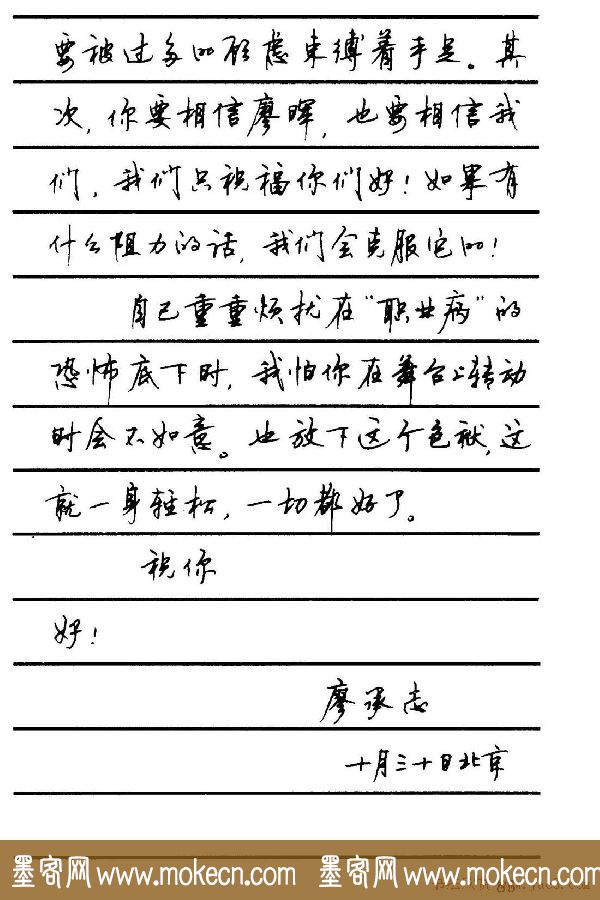 要被过多的顾虑束缚着手足。其
次，你要相信廖晖，也要相信我
们，我们只祝福你们好！如果有
什么阻力的话，我们会克服它的！
自己重重烦扰在“职业病”的
恐怖底下时，我怕你在舞台上转动
时会不如意。也放下这个包袱，这
就一身轻松，一切都好了。
祝你
好！
廖承志
十月三十日北京
墨客网 www.mokecn.com 墨客网 www.mokecn.com